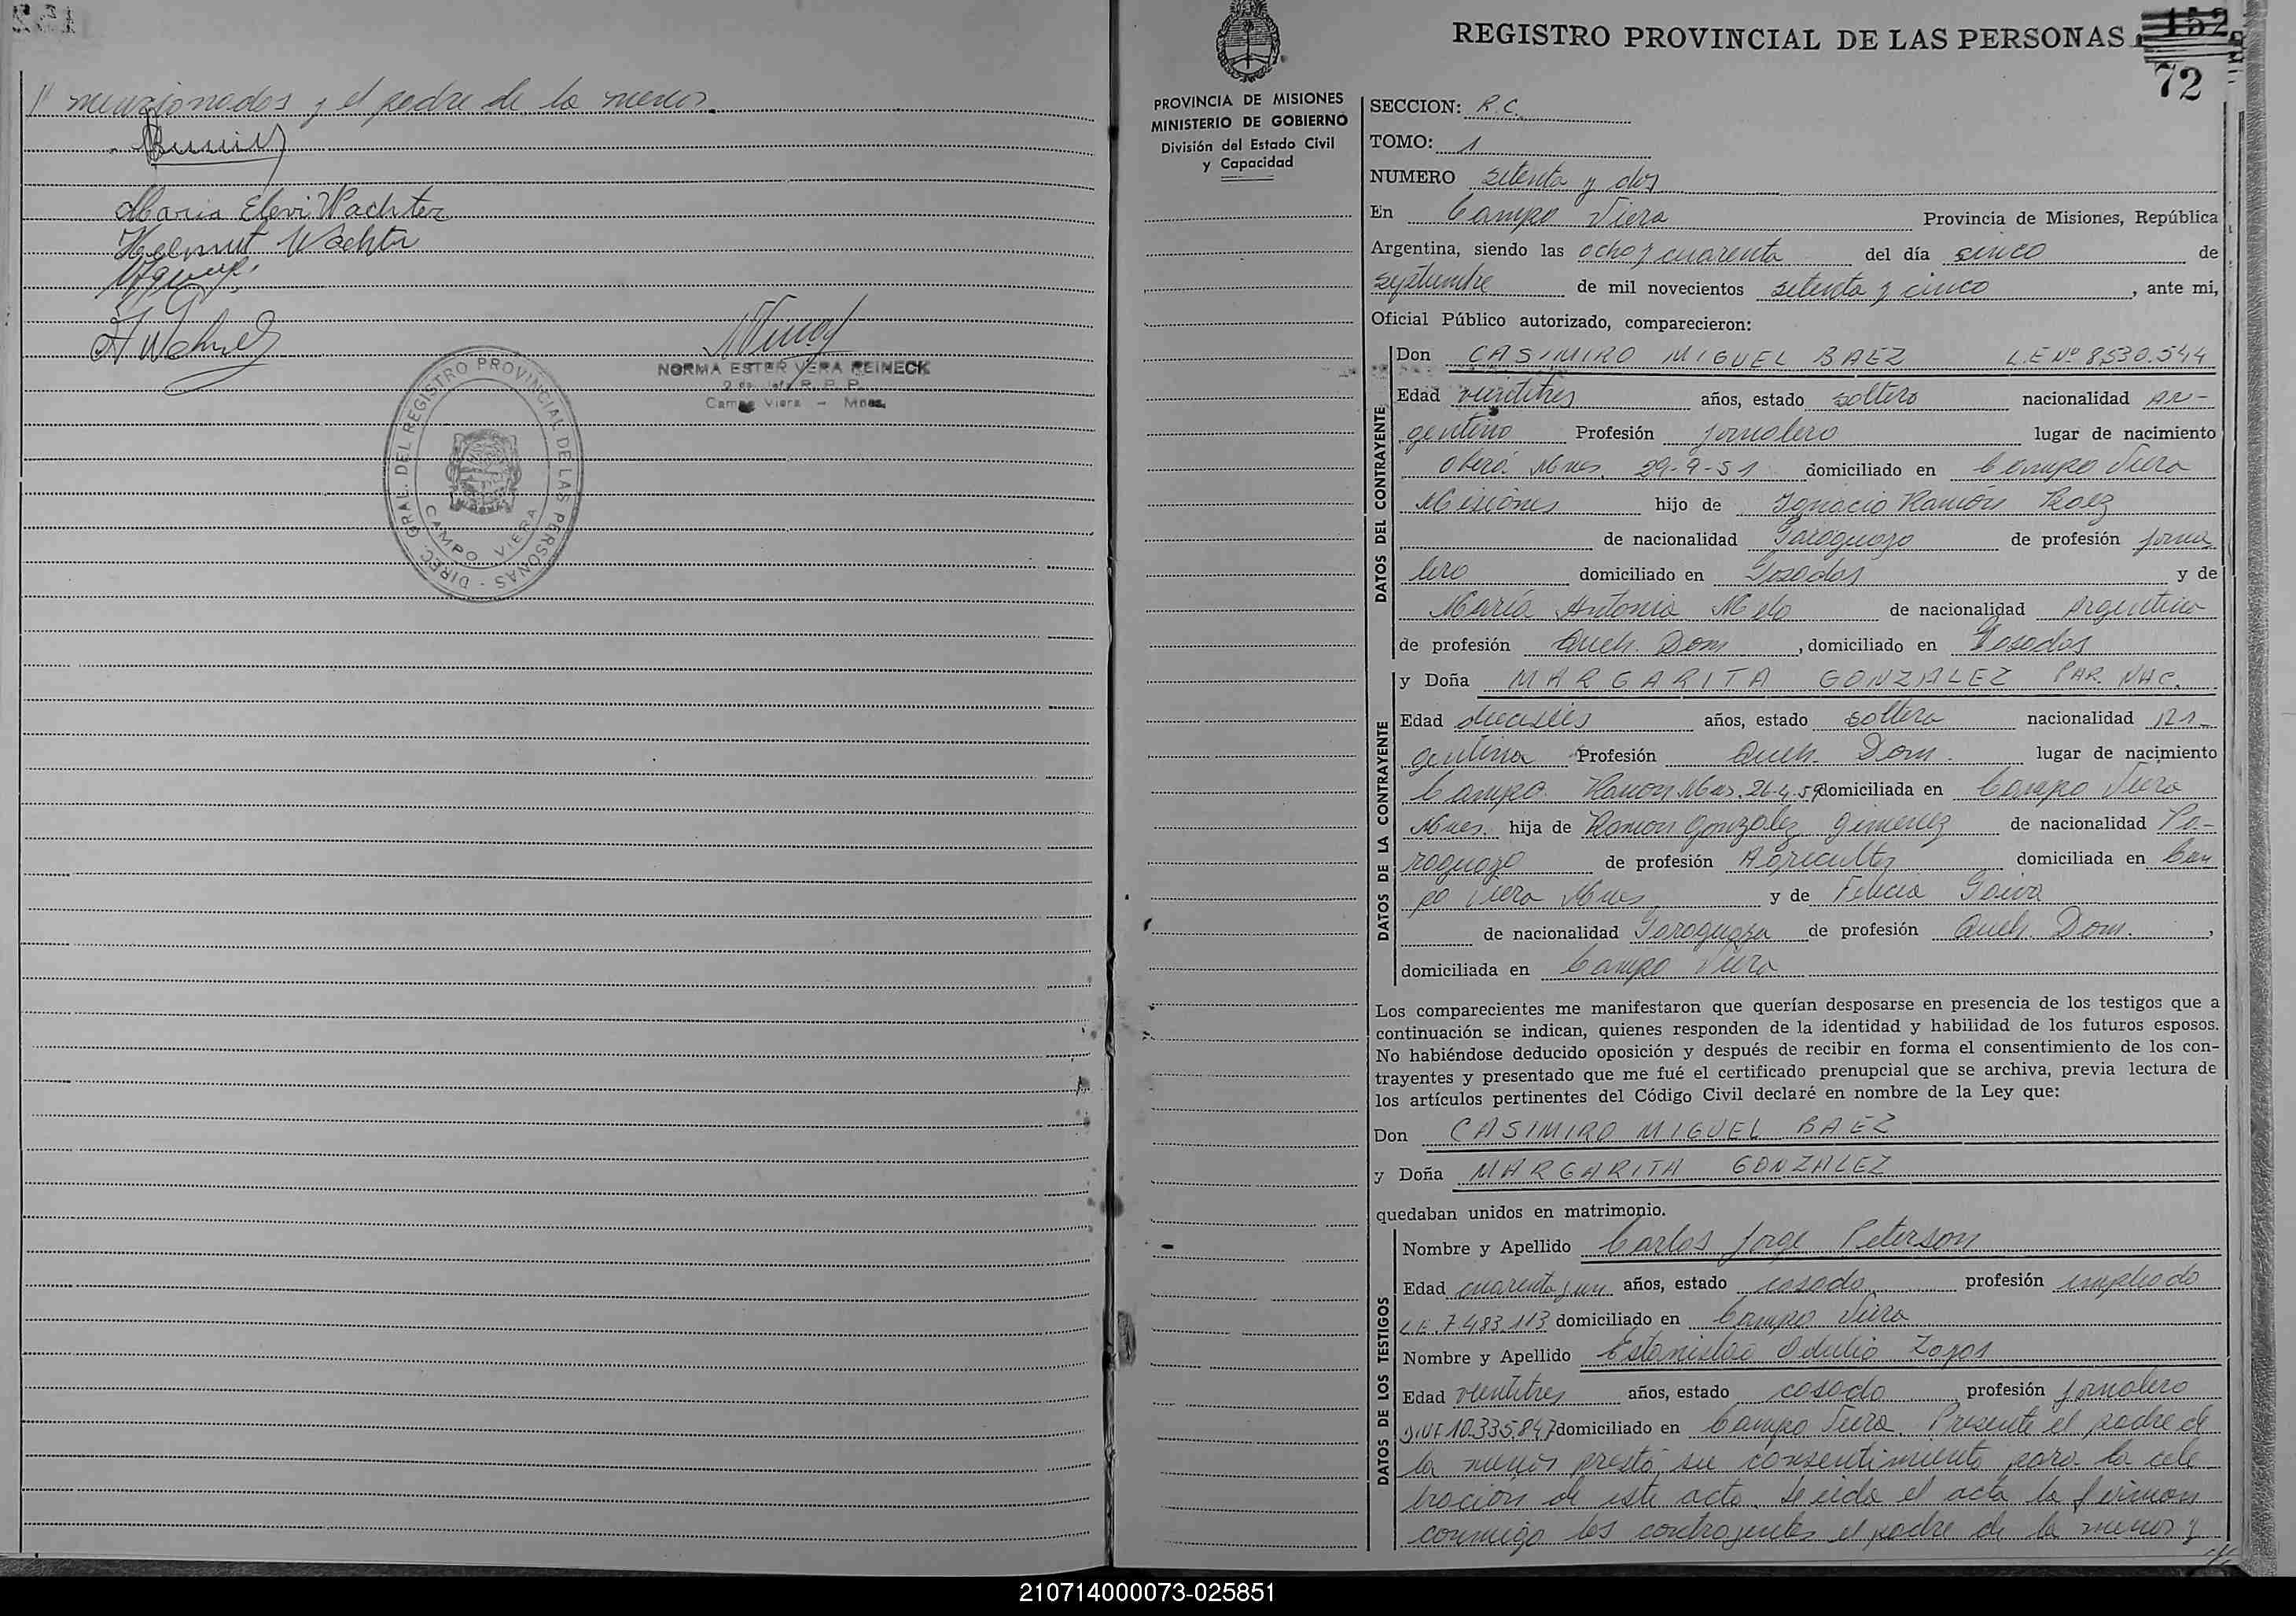 152
// mencionados y el padre de la menor.
Maria Elevi Wachter
Helmut Wachter
NORMA ESTER VERA REINECK
R. P. P.
Campo Viera - Mnes.
DIREC. GRAL. DEL REGISTRO PROVINCIAL DE LAS PERSONAS -
CAMPO VIERA
REGISTRO PROVINCIAL DE LAS PERSONAS
152
72
PROVINCIA DE MISIONES
MINISTERIO DE GOBIERNO
División del Estado Civil
y Capacidad
SECCION: R.C.
TOMO: 1
NUMERO setenta y dos
En Campo Viera Provincia de Misiones, República
Argentina, siendo las ocho y cuarenta del día cinco de
septiembre de mil novecientos setenta y cinco, ante mi,
Oficial Público autorizado, comparecieron:
DATOS DEL CONTRAYENTE
Don CASIMIRO MIGUEL BAEZ L.E Nº 8.530.544
Edad veintitres años, estado soltero nacionalidad Ar-
gentino Profesión jornalero lugar de nacimiento
Oberá Mnes. 29-9-51 domiciliado en Campo Viera
Misiones hijo de Ignacio Ramón Baez
de nacionalidad Paraguayo de profesión jorna
lero domiciliado en Posadas y de
María Antonia Melo de nacionalidad Argentina
de profesión Queh. Dom, domiciliado en Posadas
DATOS DE LA CONTRAYENTE
y Doña MARGARITA GONZALEZ PAR. NAC.
Edad dieciseis años, estado soltera nacionalidad Ar-
gentina Profesión Queh. Dom. lugar de nacimiento
Campo Ramon Mnes. 26-4-59 domiciliada en Campo Viera
Mnes. hija de Ramon Gonzalez Gimenez de nacionalidad Pa-
raguayo de profesión Agricultor domiciliada en Cam
po Viera Mnes y de Felicia
de nacionalidad Paraguaya de profesión Queh. Dom.,
domiciliada en Campo Viera
Los comparecientes me manifestaron que querían desposarse en presencia de los testigos que a
continuación se indican, quienes responden de la identidad y habilidad de los futuros esposos.
No habiéndose deducido oposición y después de recibir en forma el consentimiento de los con-
trayentes y presentado que me fué el certificado prenupcial que se archiva, previa lectura de
los artículos pertinentes del Código Civil declaré en nombre de la Ley que:
Don CASIMIRO MIGUEL BAEZ
y Doña MARGARITA GONZALEZ
quedaban unidos en matrimonio.
DATOS DE LOS TESTIGOS
Nombre y Apellido Carlos Jorge Peterson
Edad cuarenta y un años, estado casado profesión empleado
L.E. 7.483.113 domiciliado en Campo Viera
Nombre y Apellido Estanislao Odulio
Edad veintitres años, estado casado profesión jornalero
D.N.I 10.335.847 domiciliado en Campo Viera. Presente el padre de
la menor prestó su consentimiento para la cele
bracion de este acto. Leida el acta la firman
conmigo los contrayentes el padre de la menor y
//
210714000073-025851